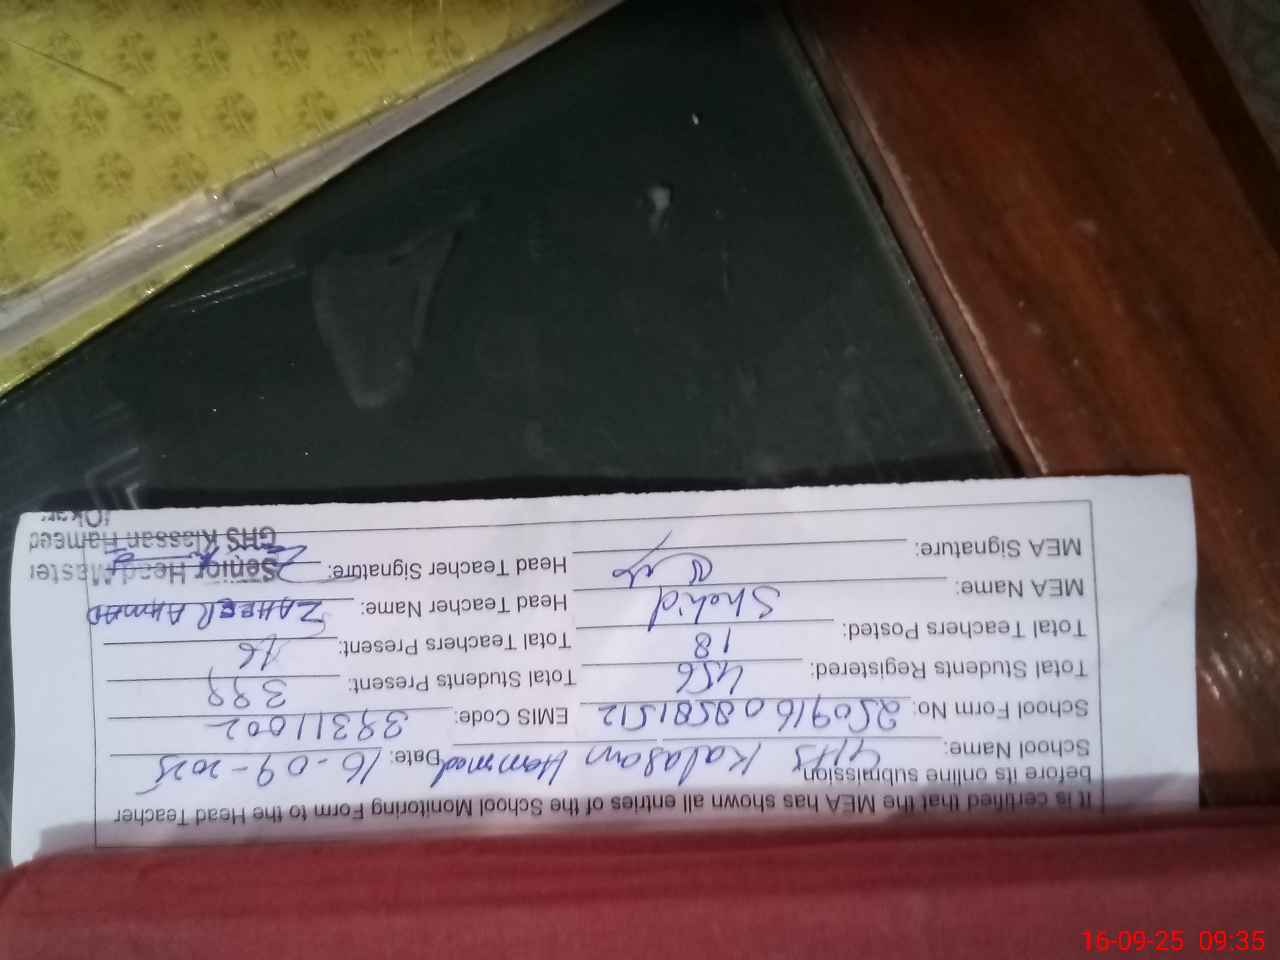 It is certified that the MEA has shown all entries of the School Monitoring Form to the Head Teacher
before its online submission
School Name: GHS Kalasan Hammed Date: 16-09-2025
School Form No: 25091608581512 EMIS Code: 39311002
Total Students Registered: 456 Total Students Present: 399
Total Teachers Posted: 18 Total Teachers Present: 16
MEA Name: Shahid Head Teacher Name: ZAHEER AHMAD
MEA Signature: Head Teacher Signature:
Senior Head Master
GHS Klassan Hameed
16-09-25 09:35